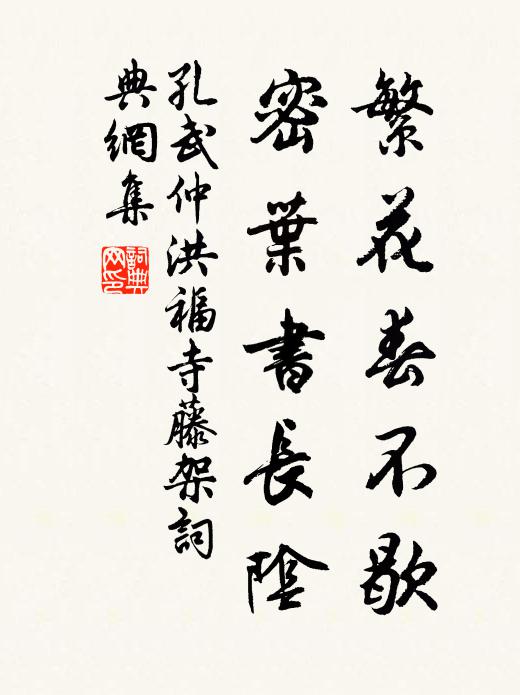 繁花春不歇
密葉書長陰
孔武仲洪福寺藤架詞
典網集
詞典網印